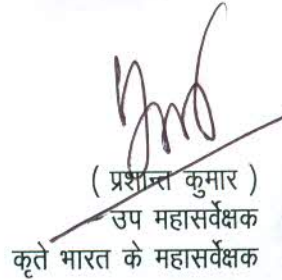 ( प्रशान्त कुमार )
उप महासर्वेक्षक
कृते भारत के महासर्वेक्षक